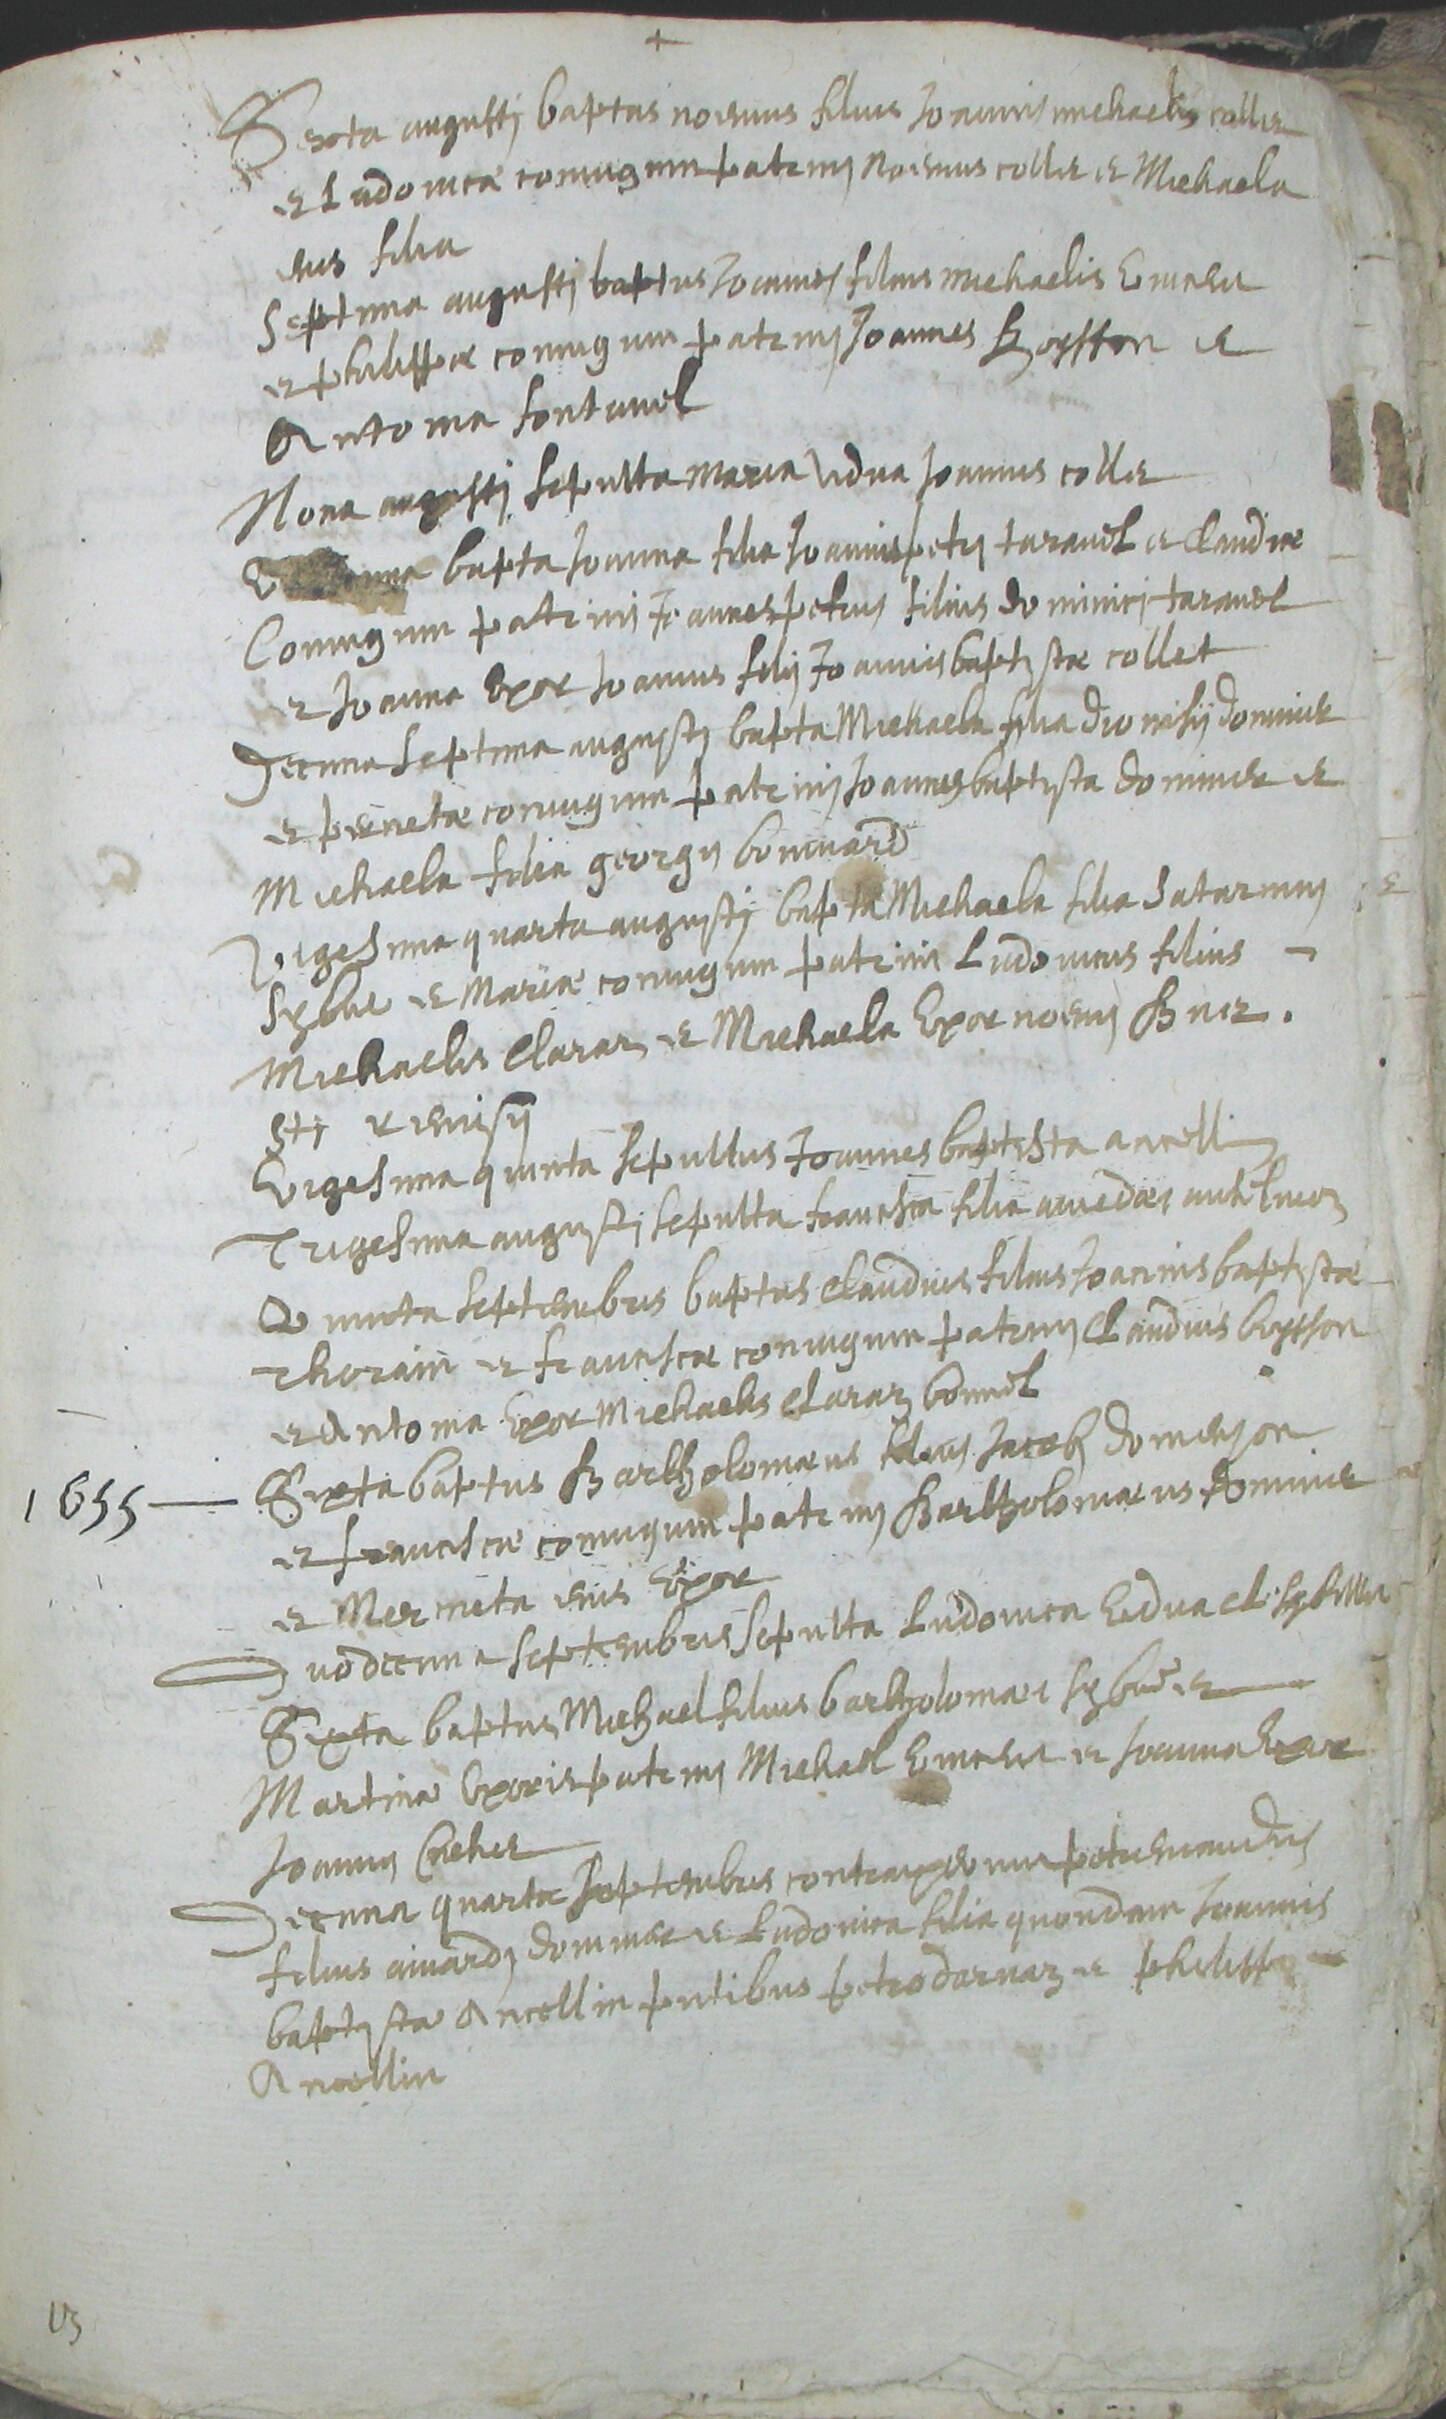 +
Sexta augusti baptus noemus filius Joannis michaelis collet
et Ludovicæ coniugum patrinis Noemus collet et Michaela
eius filia
Septima augusti baptus Joannes filius michaelis
et philippæ coniugum patrinis Joannes Boysson et
Antonia fontanel
Nona augusti sepulta Maria vidua Joannis collet
bapta Joanna filia Joannis petri taravel et Claudiæ
Coniugum patrinis Joannes petrus filius dominici taravel
et Joanna Uxor Joannis filii Joannis baptistæ collet
Decima septima augusti bapta Michaela filia dionisii dominiet
et pernetæ coniugum patrinis Joannes baptista dominiet et
Michaela filia georgii bonivard
Vigesima quarta augusti bapta Michaela filia Saturnini
Sybue et Mariæ coniugum patrinis Ludovicus filius
Michaelis Claraz et Michaela Uxor noemi
Sti remisii
Vigesima quinta sepultus Joannes baptista ancelli
Trigesima augusti sepulta francisca filia amedæi
Quinta septembris baptus Claudius filius Joannis baptistæ
thorain et franciscæ coniugum patrinis Claudius boysson
et Antonia Uxor Michaelis Claraz bonnel
1655 — Sexta baptus Bartholomæus filius Jacobi domenjon
et franciscæ coniugum patrinis Bartholomæus dominiet
et Mermeta eius Uxor
Duodecima septembris sepulta Ludovica Vidua
Sexta baptus Michael filius bartholomæi sybue et
Martinæ Uxoris patrinis Michael et Joanna Uxor
Joannis
Decima quarta septembris contraxerunt petremandus
filius aimardi dominiet et Ludovica filia quondam Joannis
baptistæ Ancellin pntibus petro darvaz et philippo
Ancellin